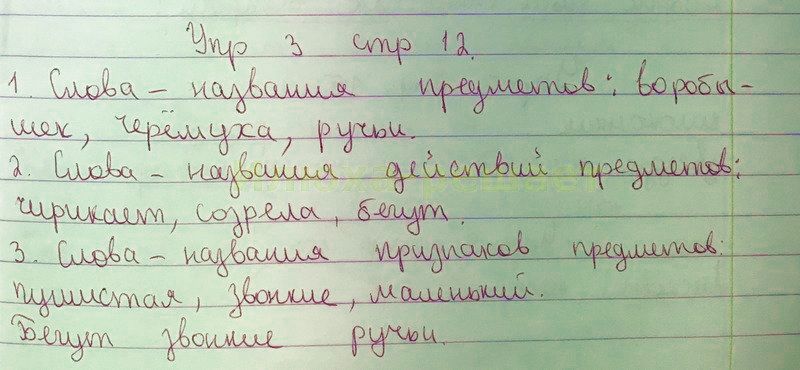 Упр 3 стр 12.
1. Слова – названия предметов: воробы-
шек, черёмуха, ручьи.
2. Слова – названия действий предметов:
чирикает, созрела, бегут.
3. Слова – названия признаков предметов:
пушистая, звонкие, маленький.
Бегут звонкие ручьи.